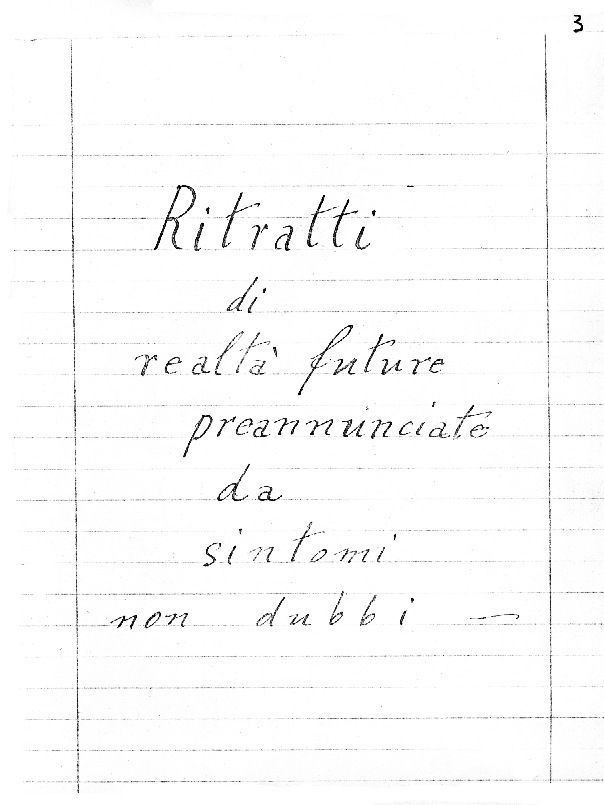 3
Ritratti
di
realtà future
preannunciate
da
sintomi
non dubbi —